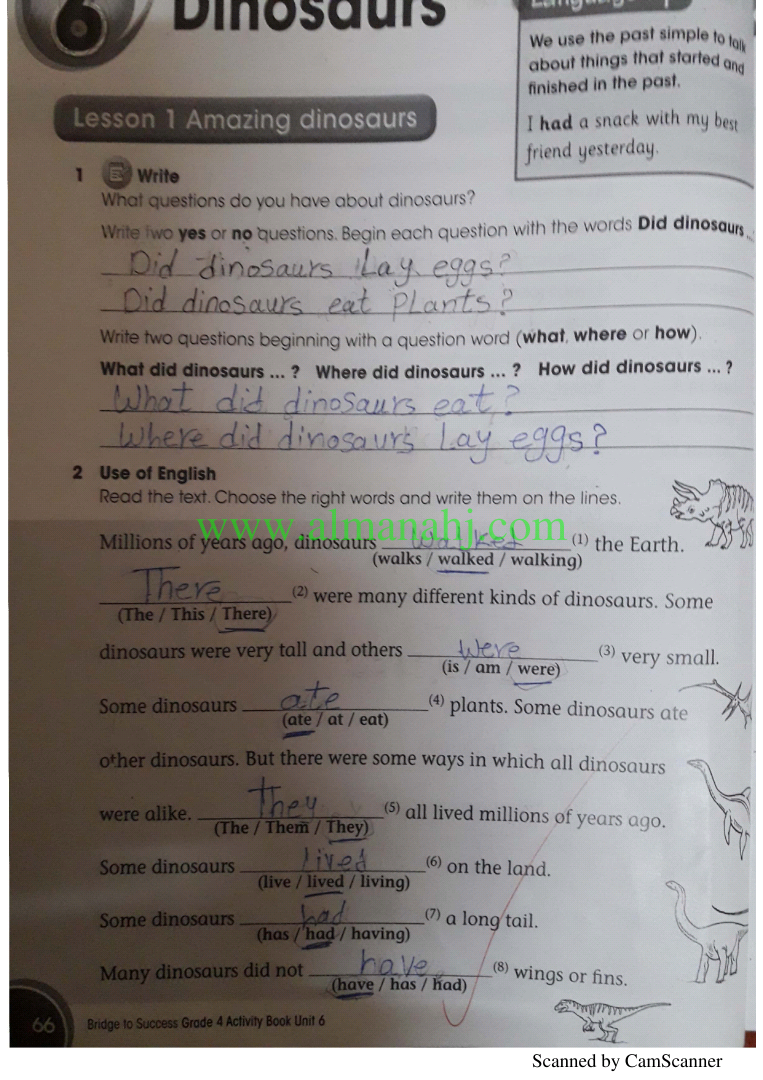 6 Dinosaurs
We use the past simple to talk
about things that started and
finished in the past.
I had a snack with my best
friend yesterday.
Lesson 1 Amazing dinosaurs
1 Write
What questions do you have about dinosaurs?
Write two yes or no questions. Begin each question with the words Did dinosaurs ..
Did dinosaurs Lay eggs?
Did dinosaurs eat PLants?
Write two questions beginning with a question word (what, where or how).
What did dinosaurs ... ? Where did dinosaurs ... ? How did dinosaurs ... ?
What did dinosaurs eat?
Where did dinosaurs Lay eggs?
2 Use of English
Read the text. Choose the right words and write them on the lines.
www.almanahj.com
Millions of years ago, dinosaurs walked (1) the Earth.
(walks / walked / walking)
There (2) were many different kinds of dinosaurs. Some
(The / This / There)
dinosaurs were very tall and others were (3) very small.
(is / am / were)
Some dinosaurs ate (4) plants. Some dinosaurs ate
(ate / at / eat)
other dinosaurs. But there were some ways in which all dinosaurs
were alike. They (5) all lived millions of years ago.
(The / Them / They)
Some dinosaurs lived (6) on the land.
(live / lived / living)
Some dinosaurs had (7) a long tail.
(has / had / having)
Many dinosaurs did not have (8) wings or fins.
(have / has / had)
66 Bridge to Success Grade 4 Activity Book Unit 6
Scanned by CamScanner